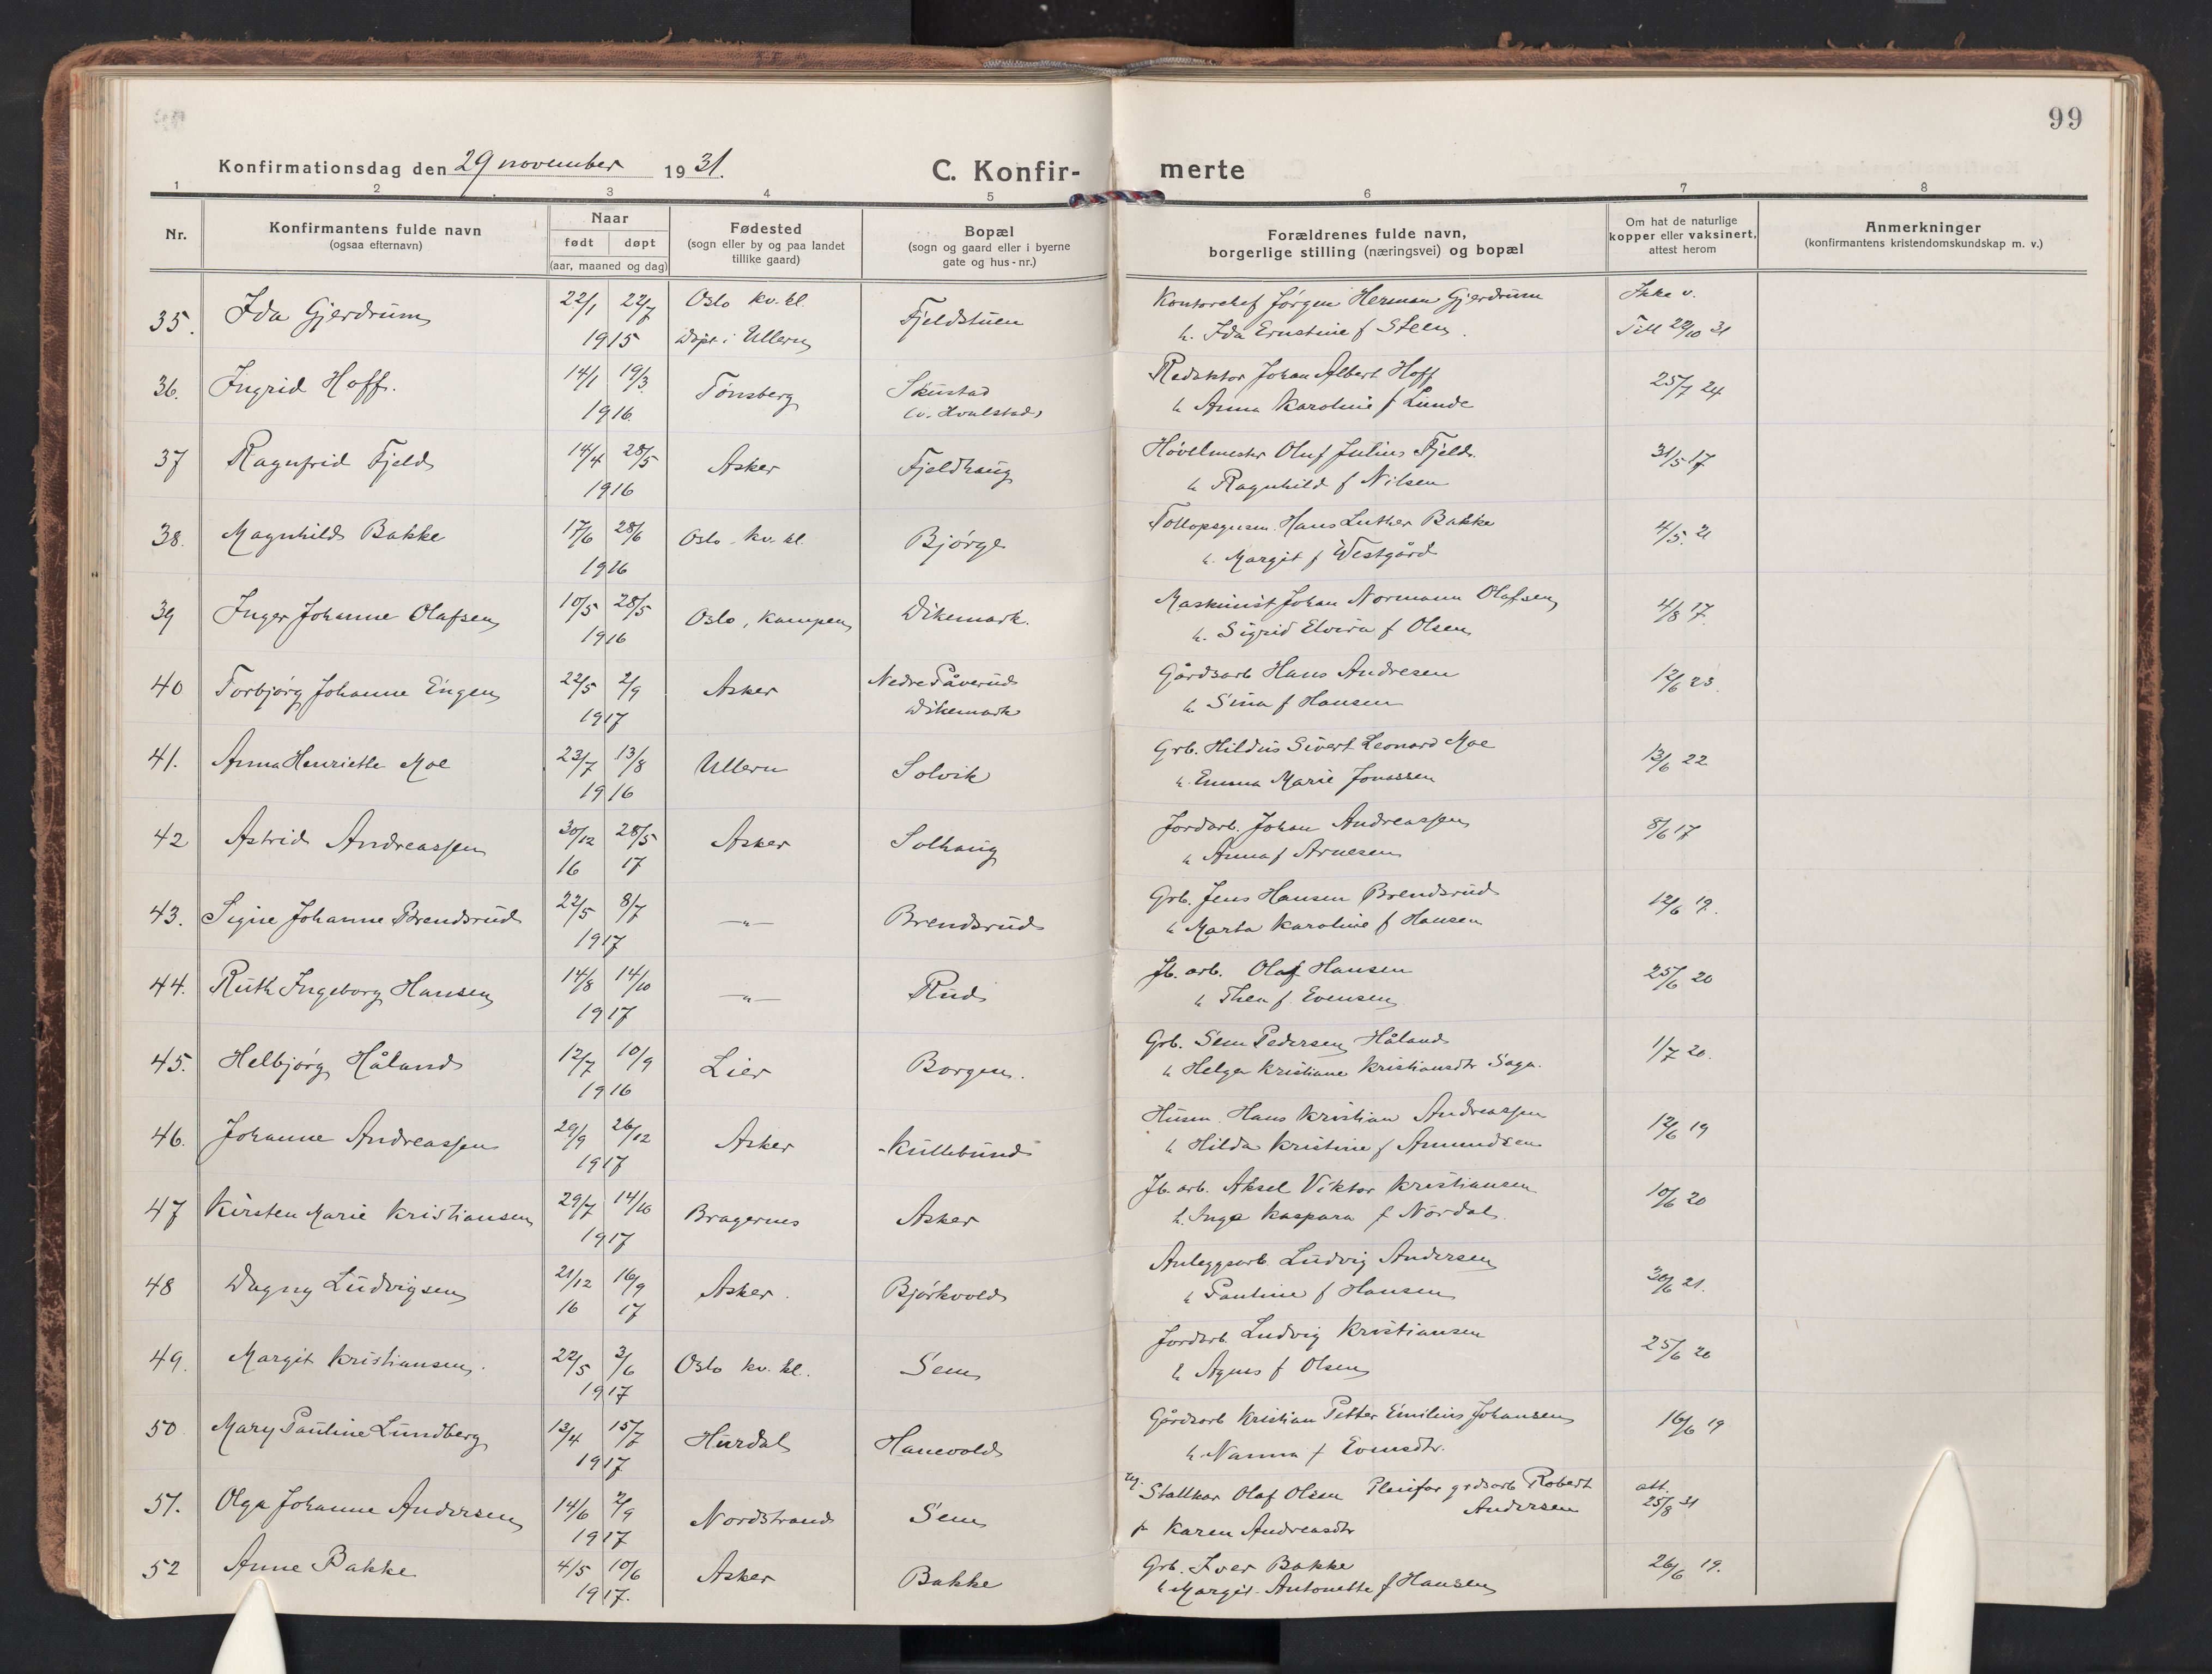 99
Konfirmationsdag den 29 november 1931.
C. Konfir-
merte
1 2 3 4 5 6 7 8
Nr.
Konfirmantens fulde navn
(ogsaa efternavn)
Naar
født døpt
(aar, maaned og dag)
Fødested
(sogn eller by og paa landet
tillike gaard)
Bopæl
(sogn og gaard eller i byerne
gate og hus-nr.)
Forældrenes fulde navn,
borgerlige stilling (næringsvei) og bopæl
Om hat de naturlige
kopper eller vaksinert,
attest herom
Anmerkninger
(konfirmantens kristendomskundskap m. v.)
35. Ida Gjerdrum 22/1 22/7 Oslo kv. kl. Fjeldstuen Kontorchef Jørgen Herman Gjerdrum Ikke v.
1915 Døpt i Ullern h. Ida Ernstine f Steen. Till 22/10 31
36. Ingrid Hoff. 14/1 19/3 Tønsberg Skustad Redaktør Johan Albert Hoff 25/7 24
1916. (v. Hvalstad) h Anna Karoline f Lunde
37 Ragnfrid Fjeld 14/4 28/5 Asker Fjeldhaug Høvelmester Oluf Julius Fjeld. 31/5 17
1916 h Ragnhild f Nilsen
38. Magnhild Bakke 17/6 28/6 Oslo kv. kl. Bjørge Tollopsynsm. Hans Luther Bakke 4/5. 21
1916 h. Margit f Westgård
39 Inger Johanne Olafsen 10/5 28/5 Oslo, Kampen Dikemark. Maskinist Johan Normann Olafsen 4/8 17.
1916 h. Sigrid Elvira f Olsen
40 Torbjørg Johanne Engen 22/5 2/9 Asker Nedre Påverud Gårdsarb Hans Andresen 12/6 23.
1917 Dikemark h Sina f Hansen
41. Anna Henriette Moe 23/7 13/8 Ullern Solvik Grb. Hildus Sivert Leonard Moe 13/6 22
1916 h. Emma Marie Jonassen
42 Astrid Andreassen 30/12 28/5 Asker Solhaug Jordarb. Johan Andreassen 8/6 17
16 17 h Anna f Arnesen
43. Signe Johanne Brendsrud 22/5 8/7 —"— Brendsrud Grb. Jens Hansen Brendsrud 12/6 19.
1917 h Marta Karoline f Hansen
44. Ruth Ingeborg Hansen 14/8 14/10 —"— Rud Jb. arb. Olaf Hansen 25/6 20
1917 h Thea f. Evensen
45. Helbjørg Håland 12/7 10/9 Lier Borgen. Grb. Sem Pedersen Håland 1/7 20.
1916 h Helga Kristiane Kristiansdtr Saga.
46. Johanne Andreassen 29/9 26/12 Asker Kullebund Husm. Hans Kristian Andreassen 12/6 19
1917 h Hilda Kristine f Amundsen
47 Kirsten Marie Kristiansen 29/7 14/10 Bragernes Asker Jb. arb. Aksel Viktor Kristiansen 10/6 20
1917 h. Inga Kaspara f Nordal.
48 Dagny Ludvigsen 21/12 16/9 Asker. Bjørkvold Anleggsarb Ludvig Andersen 30/6 21.
16 17 h Pauline f Hansen
49. Margit Kristiansen. 22/5 3/6 Oslo kv. kl. Sem Jordarb. Ludvig Kristiansen 25/6 20
1917 h Agnes f Olsen
50 Mary Pauline Lundberg 13/4 15/7 Hurdal Hanevold Gårdsarb Kristian Petter Emilius Johansen 16/6 19
1917 h. Nanna f Evensdtr.
51. Olga Johanne Andersen 14/6 2/9 Nordstrand Sem Stallkar Olaf Olsen Pleiefar grdsarb Robert Andersen att. 25/8 31
1917 f Karen Andreasdtr
52 Anne Bakke 4/5 10/6 Asker Bakke Grb. Iver Bakke 26/6 19.
1917. h Margit Antonette f Hansen